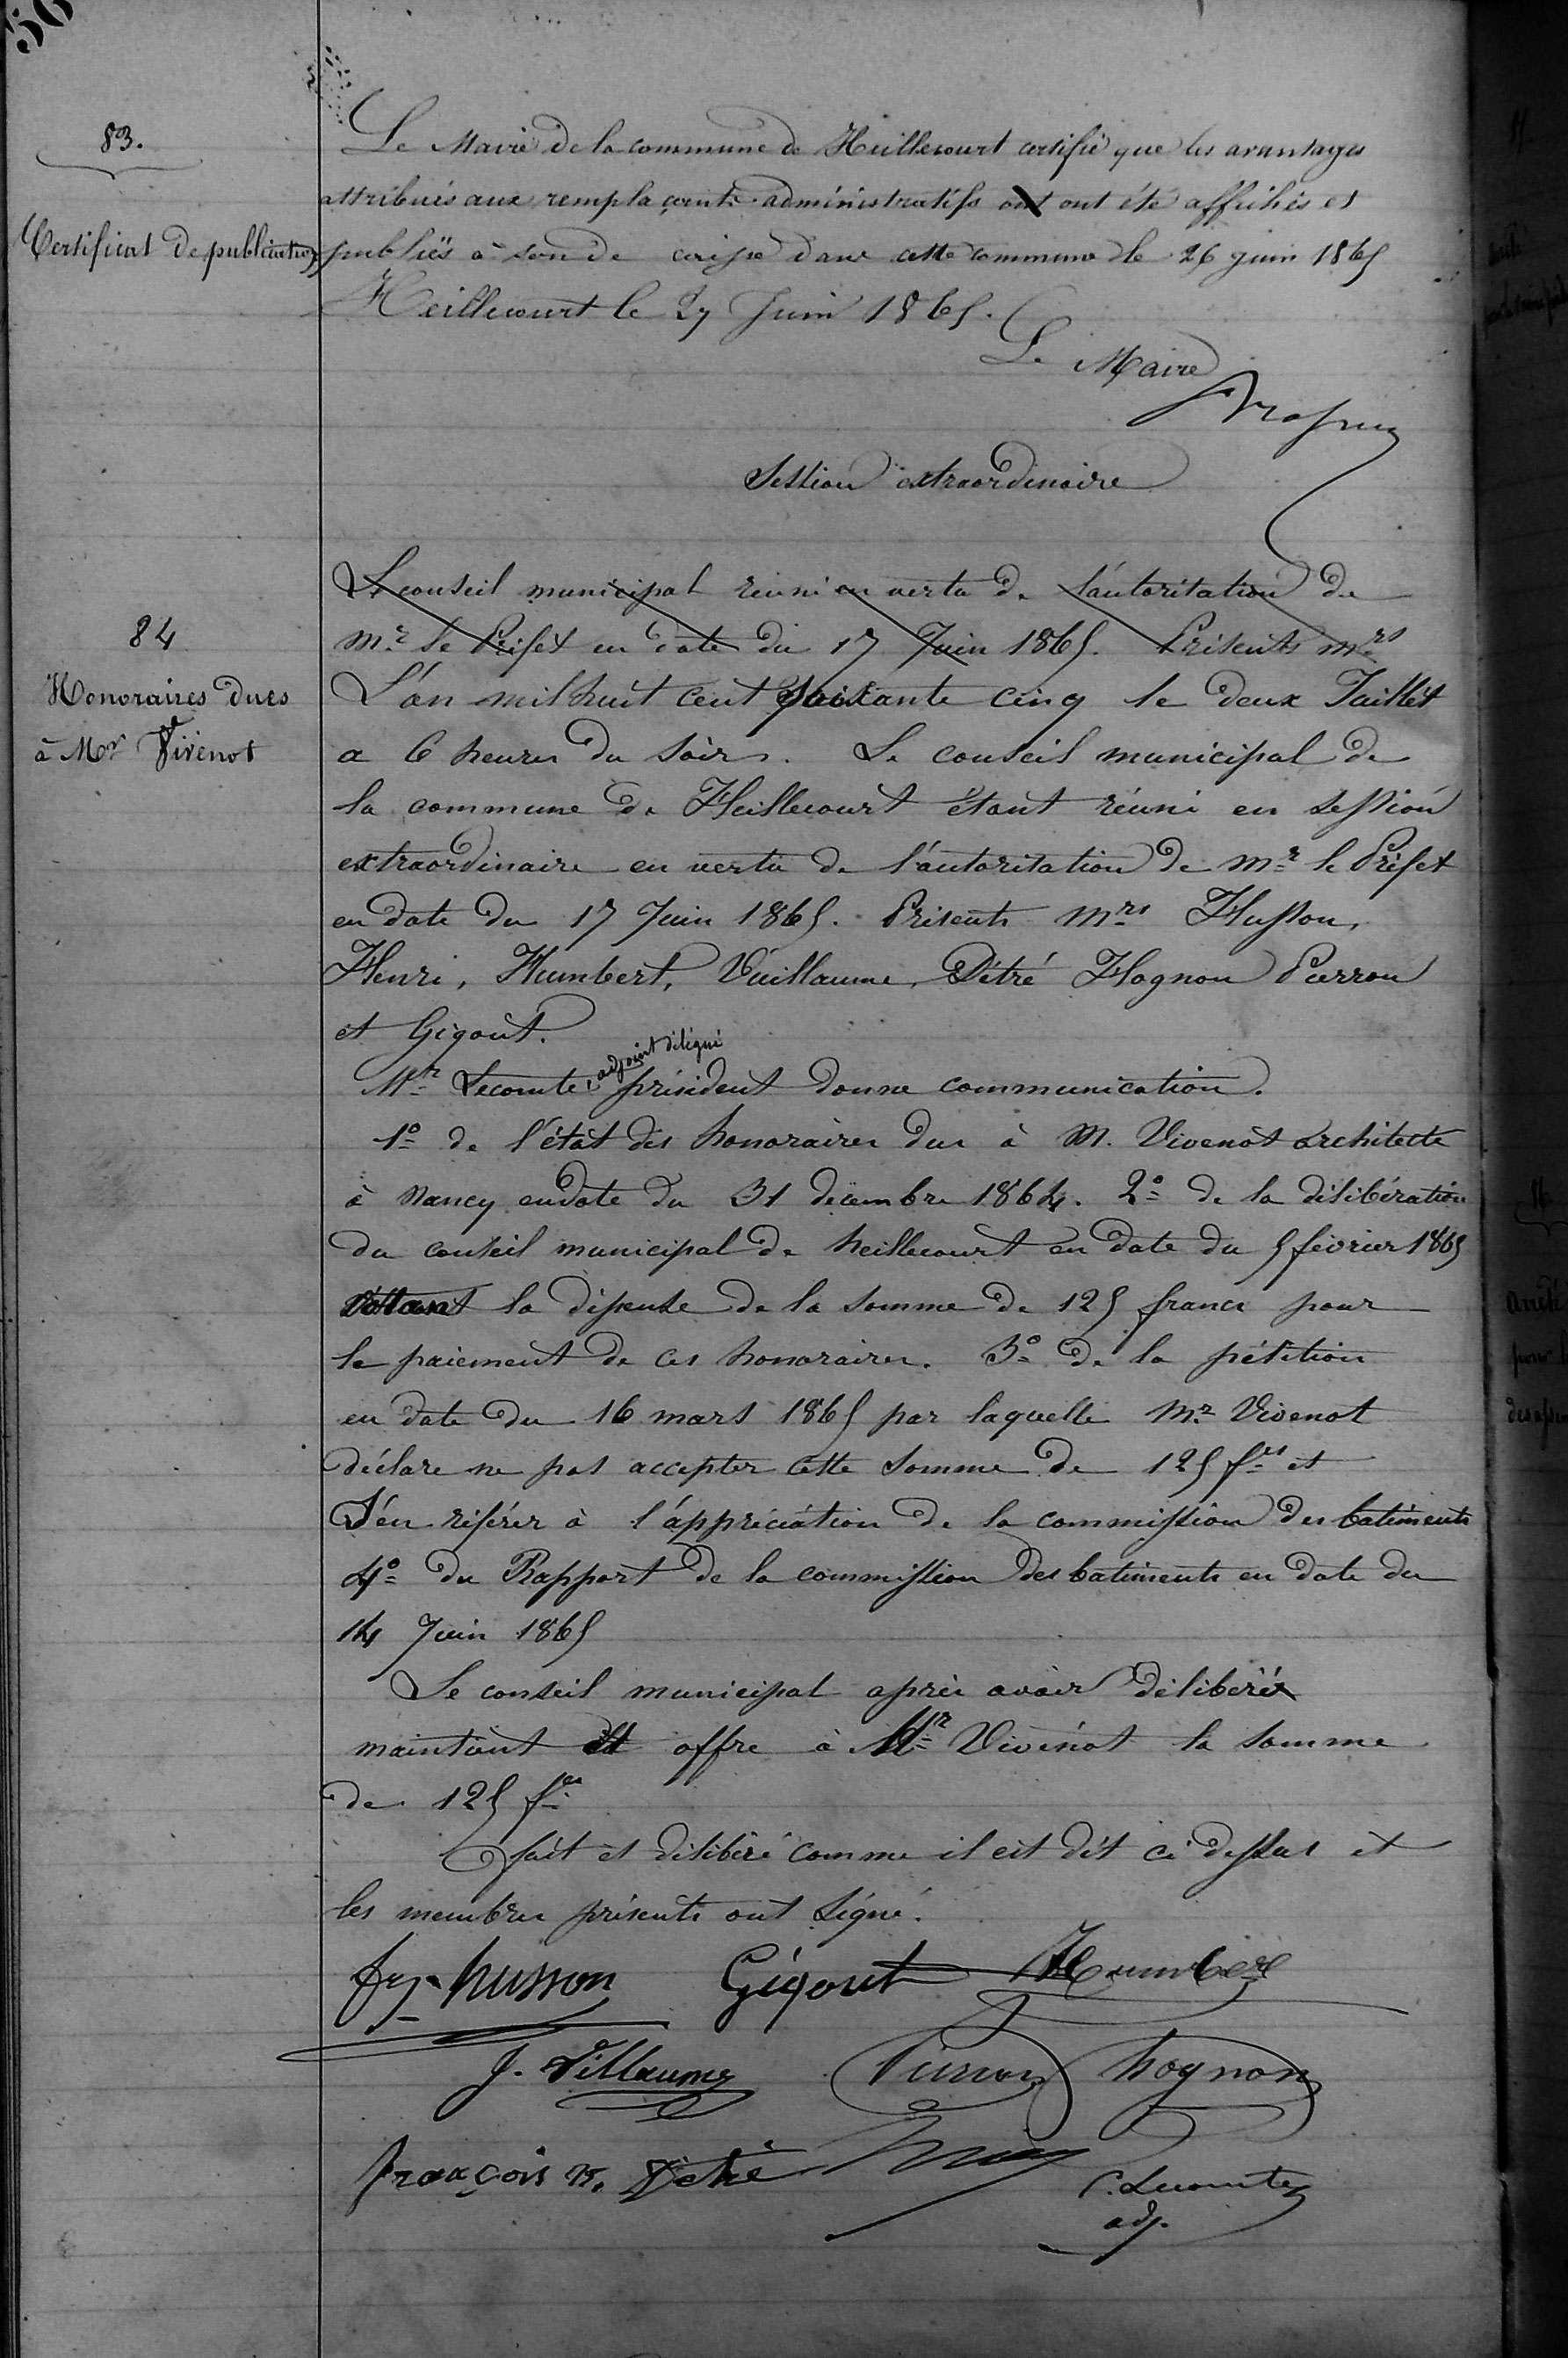 56
83.
Certificat de publication
Le Maire de la commune de Heillecourt certifie que les avantages
attribués aux remplaçants administratifs ont ont été affichés et
publiés à son de caisse dans cette commune le 26 juin 1865
Heillecourt le 27 Juin 1865.
Le Maire
Session extraordinaire
84
Honoraires dues
à Mr Vivenot
Le conseil municipal réuni en vertu de l'autoritation de
Mr le Préfet en date du 17 Juin 1865. Présents Mrs
L'an mil huit cent soixante cinq le deux Juillet
a 6 heures du soir. Le conseil municipal de
la commune de Heillecourt étant réuni en session
extraordinaire en vertu de l'autoritation de Mr le Préfet
en date du 17 Juin 1865. Présents Mrs Husson,
Henri, Humbert, Vuillaume, Détré Hognon Pierron
et Gigout.
Mr Lecomte, adjoint délégué président donne communication.
1º de l'état des honoraires dus à M. Vivenot architecte
à Nancy en date du 31 décembre 1864. 2º de la délibération
du conseil municipal de heillecourt en date du 5 février 1865
votant la dépense de la somme de 125 francs pour
le paiement de ces honoraires. 3º de la pétition
en date du 16 mars 1865 par laquelle Mr Vivenot
déclare ne pas accepter cette somme de 125 frcs et
s'en référer à l'appréciation de la commission des batiments
4º du Rapport de la commission des batiments en date du
14 Juin 1865
Le conseil municipal après avoir délibéré
maintient et offre à Mr Vivenot la somme
de 125 frs
fait et délibéré comme il est dit ci dessus et
les membres présents ont signé.
husson Gigout Humbert
J. Villaume Pierron hognon
françois n. Détré
C. Lecomte
adj.